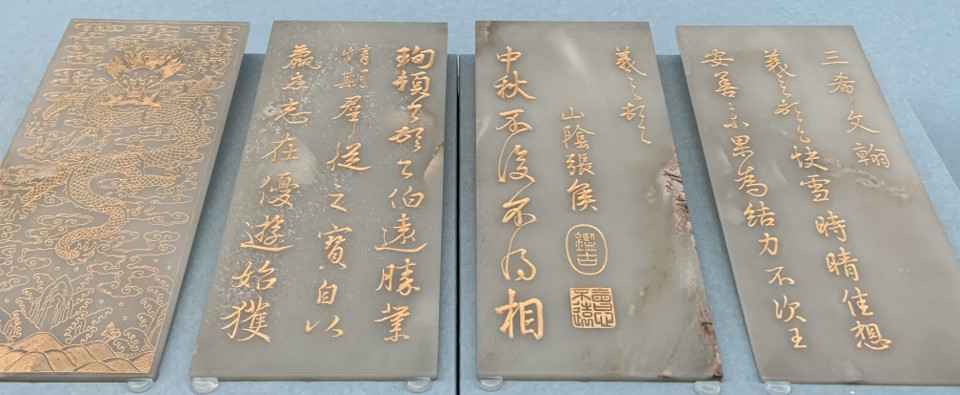 三希文翰
羲之頓首快雪時晴佳想
安善未果為結力不次王
羲之頓首
山陰張侯
鑑古
中秋不復不得相
珣頓首頓首伯遠勝業
情期羣從之寶自以
羸患志在優遊始獲